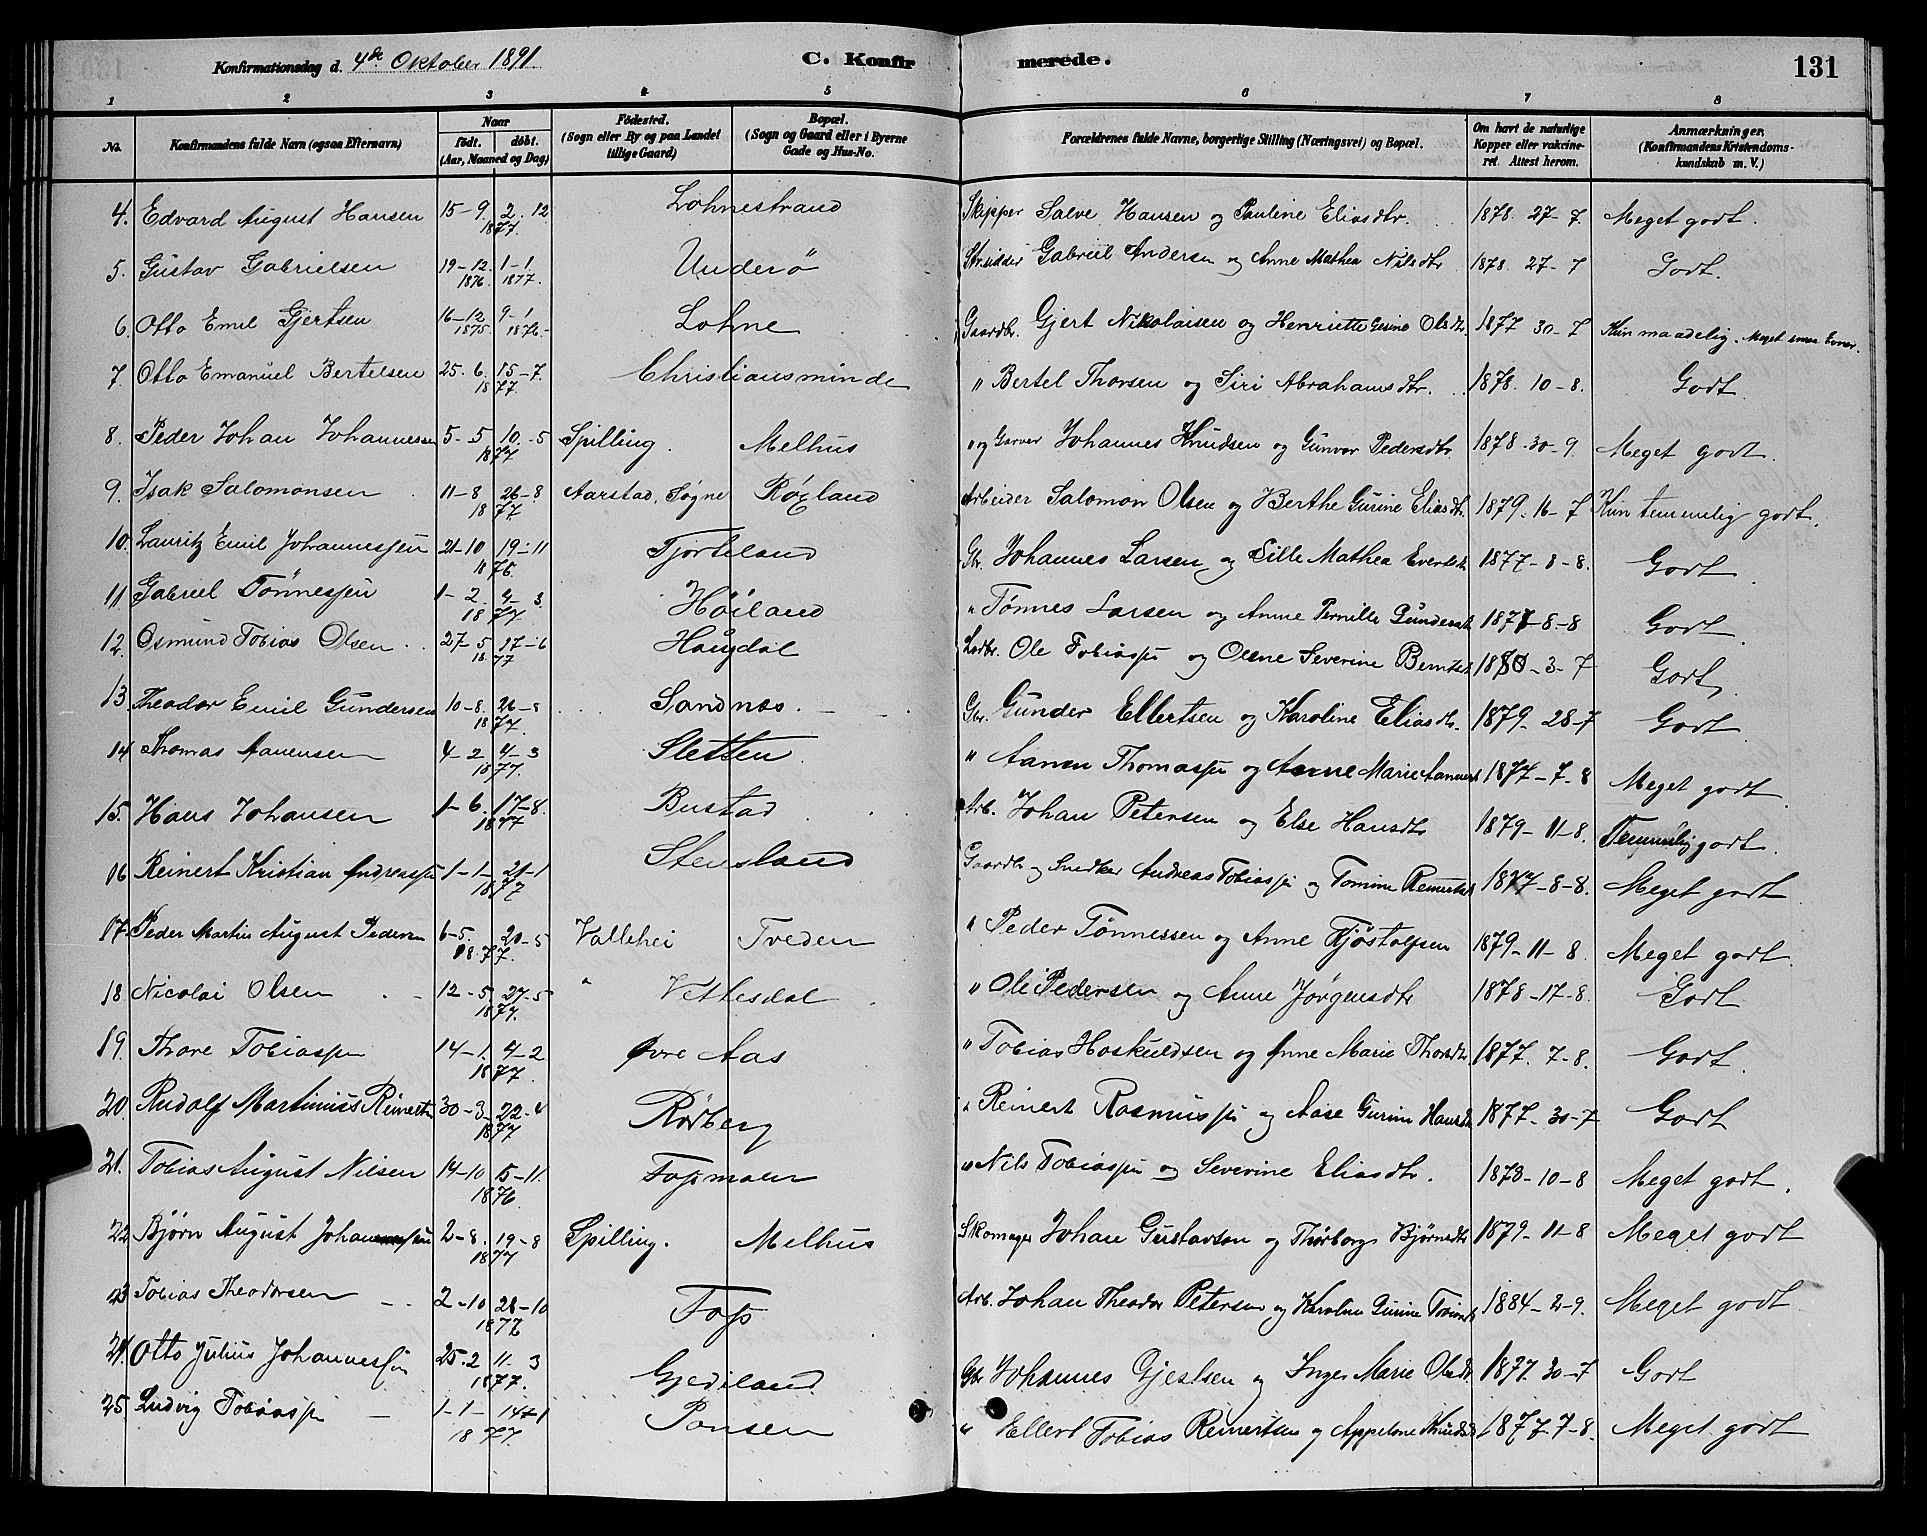 Konfirmationsdag d. 4de Oktober 1891.
C. Konfir
merede.
131
1 2 3 4 5 6 7 8
No. Konfirmandens fulde Navn (ogsaa Efternavn) Naar født. døbt. (Aar, Maaned og Dag) Fødested. (Sogn eller By og paa Landet tillige Gaard) Bopæl. (Sogn og Gaard eller i Byerne Gade og Hus-No. Forældrenes fulde Navne, borgerlige Stilling (Næringsvei) og Bopæl. Om havt de naturlige Kopper eller vakcineret. Attest herom. Anmærkninger. (Konfirmandens Kristendomskundskab m. V.)
4. Edvard August Hansen 15-9. 2.12 1877. Lohnestrand Skipper Salve Hansen og Pauline Eliasdtr. 1878. 27-7. Meget godt.
5. Gustav Gabrielsen 19-12. 1876. 1-1. 1877. Underö Strsidder Gabriel Andersen og Anne Mathea Nilsdtr 1878. 27-7 Godt.
6. Otto Emil Gjertsen 16-12 1875. 9-1 1876. Lohne Gaardbr. Gjert Nikolaisen og Henriette Gesine Olsdtr. 1877 30-7 Kun maadelig. Meget smaa Evner.
7 Otto Emanuel Bertelsen 25.6. 15-7. 1877. Christiansminde " Bertel Thorsen og Siri Abrahamsdtr. 1878. 10-8. Godt.
8. Peder Johan Johannessen 5-5 10.-5 1877 Spilling. Melhus " og Garver Johannes Knudsen og Gunvor Pedersdtr. 1878-30-9. Meget godt.
9. Isak Salomonsen 11-8 26-8 1877. Aarstad, Søgne Røgland Arbeider Salomon Olsen og Berthe Gurine Eliasdtr. 1879. 16-7 Kun temmelig godt.
10. Lauritz Emil Johannessen 21-10 19-11 1876. Tjorteland Gbr. Johannes Larsen og Sille Mathea Evertsdtr 1877-8-8. Godt
11 Gabriel Tönnessen 1-2. 4-3. 1877 Höiland " Tönnes Larsen og Anne Pernille Gundersdtr 1877-8-8 Godt
12. Osmund Tobias Olsen 27-5 17-6 1877 Haugdal Ole Tobiassen og Olene Severine Berntsdtr 1880-3-7 Godt
13. Theodor Emil Gundersen 10-8. 26-8 1877. Sandnæs. Gbr. Gunder Ellertsen og Karoline Eliasdtr. 1879-28-7 Godt
14 Thomas Aanensen 4-2 4-3 1877. Sletten " Aanen Thomassen og Anne Marie Aanensdtr 1877-7-8 Meget godt
15. Hans Johansen 1-6. 17-8. 1877 Bustad Arb. Johan Petersen og Else Hansdtr 1879-11-8. Temmelig godt.
16 Reinert Kristian Andreassen 1-1- 21-1 1877 Stensland Gaardbr og Snedker Andreas Tobiassen og Tomine Reinertsdtr 1877-8-8. Meget godt
17. Peder Martin August Pedersen 6-5. 20-5 1877. Vallehei Tveden " Peder Tönnessen og Anne Fjöstolfsen 1879-11-8. Meget godt.
18. Nicolai Olsen 12-5 27-5 1877. " Vetlesdal " Ole Pedersen og Anne Jörgensdtr 1878-17-8. Godt
19. Thore Tobiassen 14-1. 4-2 1877. Øvre Aas " Tobias Hoskuldsen og Anne Marie Thorsdtr 1877. 7-8. Godt
20. Rudolf Martinius Reinertsen 30-3 22-4 1877 Rødberg " Reinert Rasmussen og Aase Gurine Hansdtr 1877-30-7 Godt
21. Tobias August Nilsen 14-10 5-11. 1876. Fossmoen " Nils Tobiassen og Severine Eliasdtr. 1878-10-8 Meget godt.
22 Bjørn August Johansen 2-8. 19-8 1877 Spilling. Melhus Skomager Johan Gustavson og Thorborg Bjørnsdtr 1879-11-8 Meget godt
23 Tobias Theodorsen 2-10 28-10 1877 Foss Arb. Johan Theodor Petersen og Karoline Gurine Tobiasdtr 1884-2-9. Meget godt
24. Otto Julius Johannessen 25.2 11-3 1877. Gjedeland Gbr Johannes Gjertsen og Inger Marie Olsdtr 1877. 30-7 Godt
25. Ludvig Tobiassen 1-1- 14-1 1877. Ponsen " Ellert Tobias Reinertsen og Appelone Knudsdtr 1877. 7-8. Meget godt